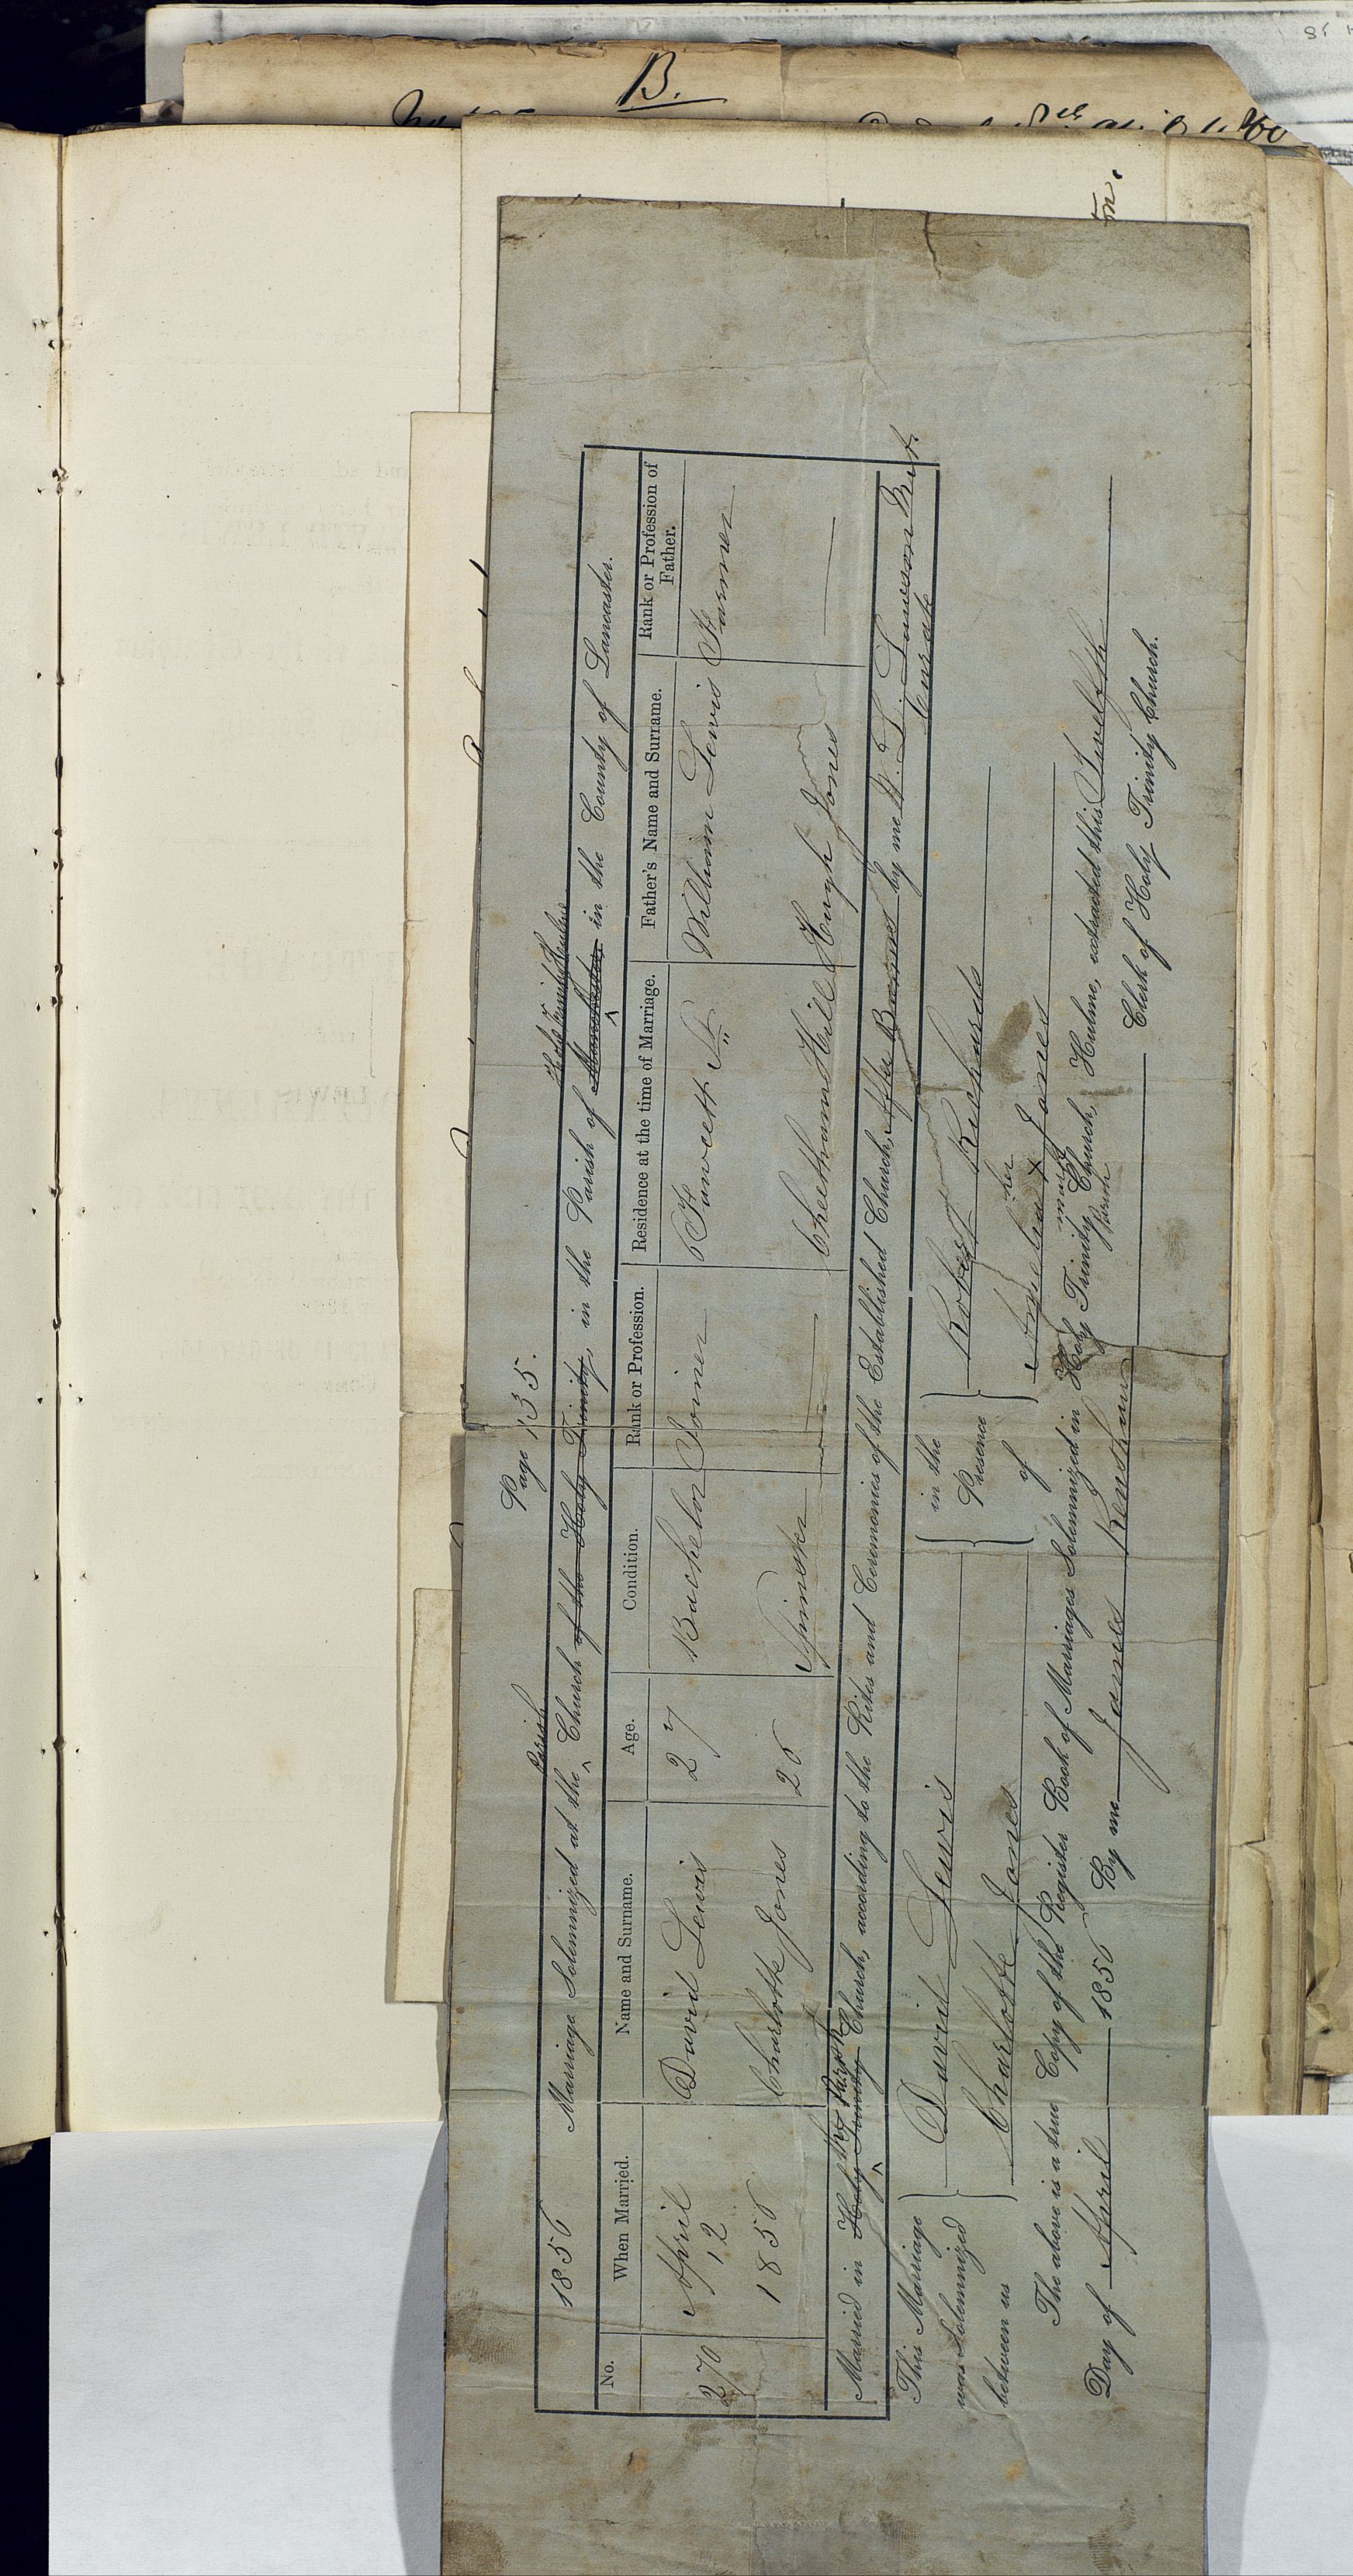 B.
Page 135.
Parish
Holy Trinity Hulme
1856 Marriage Solemnized at the ^ Church of the Holy Trinity, in the Parish of Manchester, ^ in the County of Lancaster.
No. When Married. Name and Surname. Age. Condition. Rank or Profession. Residence at the time of Marriage. Father's Name and Surname. Rank or Profession of Father.
270 April 12 1856
David Lewis 27 Bachelor Joiner Fawcett St. William Lewis Farmer
Charlotte Jones 26 Spinster — Cheetham Hill Hugh Jones —
the Parish
Married in Holy Trinity ^ Church, according to the Rites and Ceremonies of the Established Church, After Banns by me
Curate
This Marriage was Solemnized between us { David Lewis
Charlotte Jones
in the Presence of { Robert Richards
Amelia her x mark Jones
The above is a true Copy of the Register Book of Marriages Solemnized in Holy Trinity Parish Church, Hulme, extracted this Twelfth
Day of April 1856 By me James Renshaw Clerk of Holy Trinity Church.